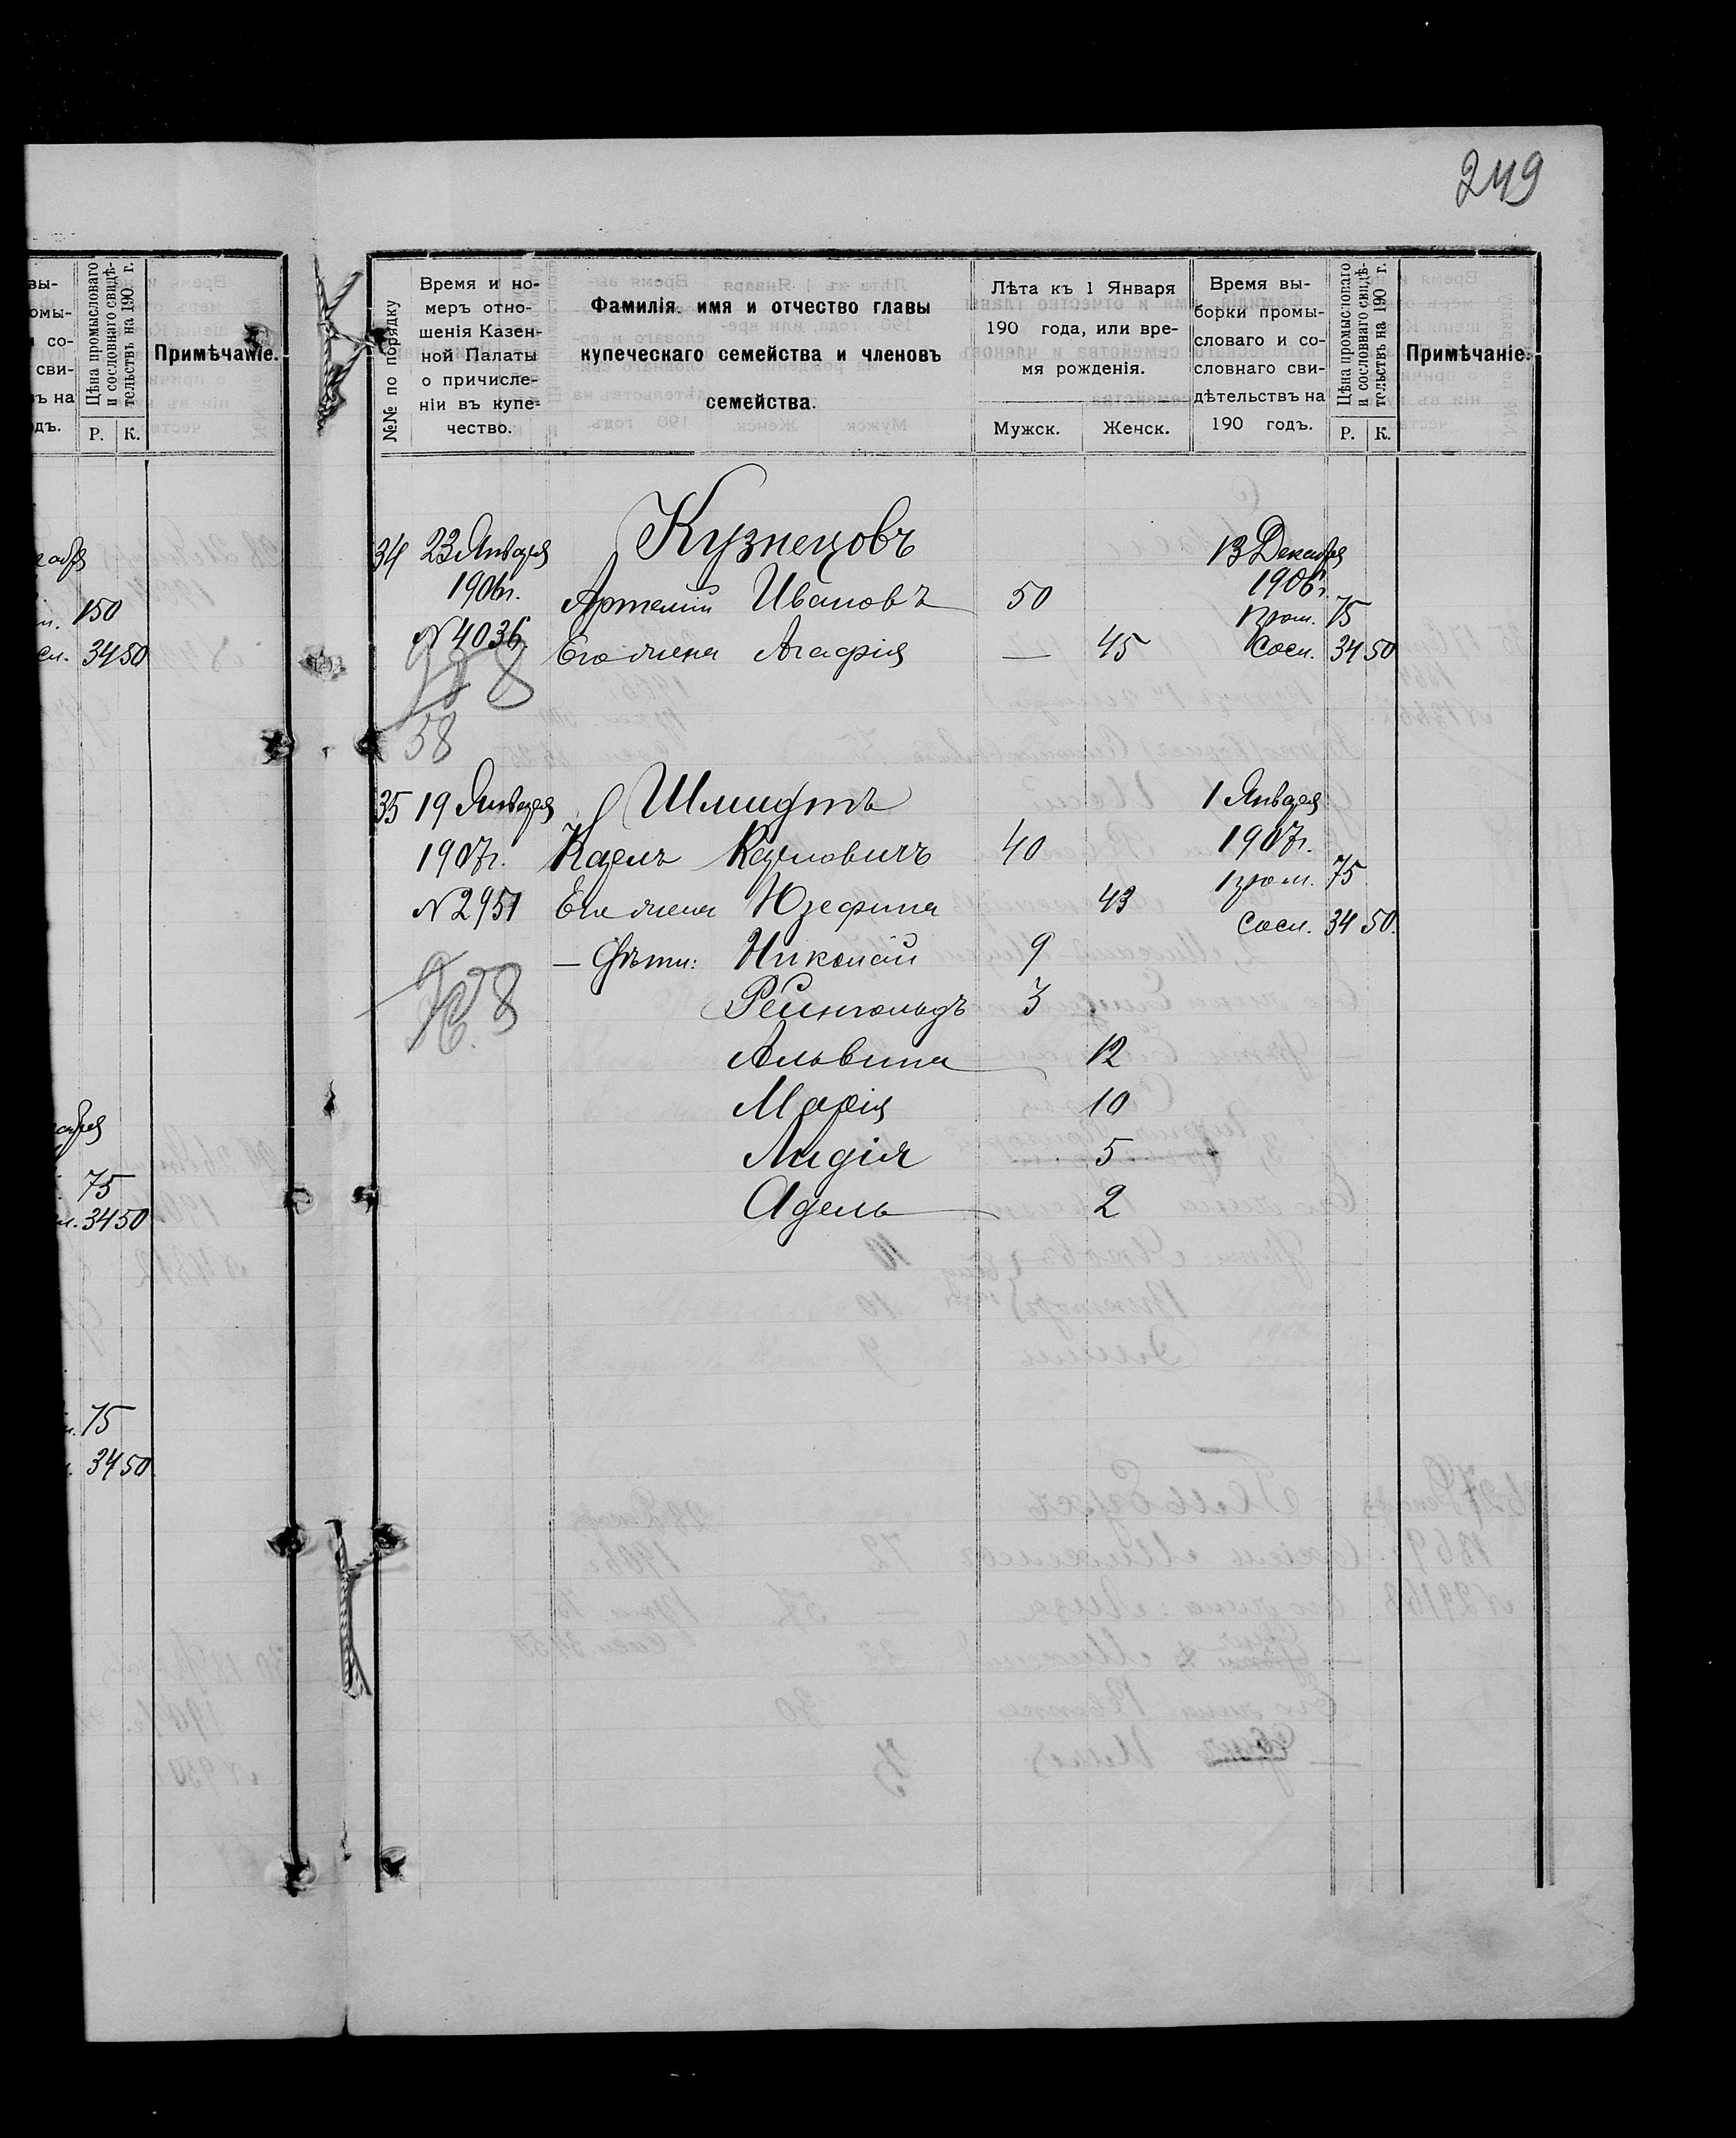 249
вы-
омы-
со-
сви-
ъ на
одъ.
Цѣна промысловаго
и сословнаго свидѣ-
тельствъ на 190 г.
Р. К.
Примѣчаніе.
150
сл. 34 50
75
34 50
75
34 50
№№ по порядку
Время и но-
меръ отно-
шенія Казен-
ной Палаты
о причисле-
ніи въ купе-
чество.
Фамилія, имя и отчество главы
купеческаго семейства и членовъ
семейства.
Лѣта къ 1 Января
190 года, или вре-
мя рожденія.
Мужск. Женск.
Время вы-
борки промы-
словаго и со-
словнаго сви-
дѣтельствъ на
190 годъ.
Цѣна промысловаго
и сословнаго свидѣ-
тельствъ на 190 г.
Р. К.
Примѣчаніе.
34 23 Января Кузнецовъ 13 Декабря
1906 г. Артемій Ивановъ 50 1906 г.
пром. 75
№ 4036 Его жена Агафія — 45 Сосл. 34 50
58
35 19 Января Шмидтъ 1 Января
1907 г. Карлъ Карловичъ 40 1907 г.
пром. 75
№ 2951 Его жена Юзефина 43
Сосл. 34 50.
— Дѣти: Николай 9
Рейнгольдъ 3
Альвина 12
Марія 10
Лидія 5
Адель 2